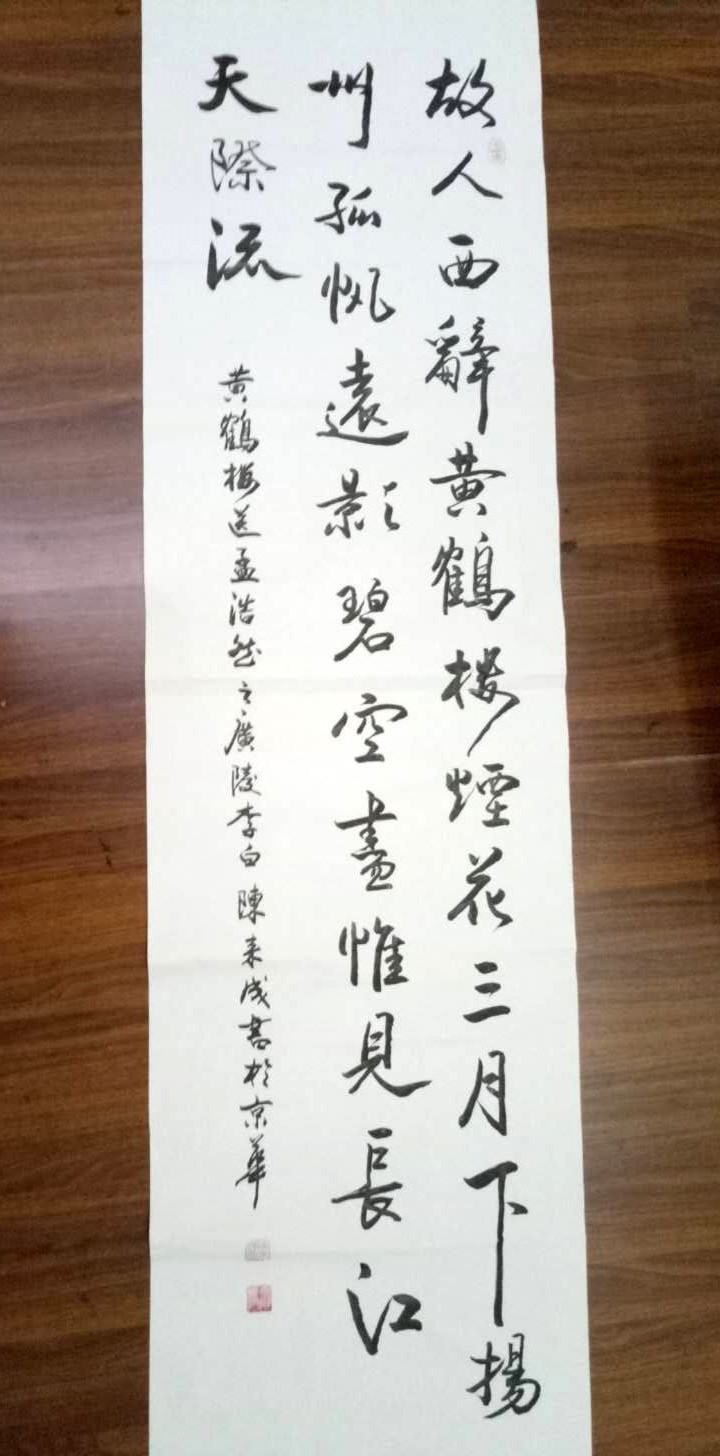 故人西辭黄鶴楼煙花三月下揚
州孤帆遠影碧空盡惟見長江
天際流
黄鶴楼送孟浩然之廣陵李白陳来成書於京華